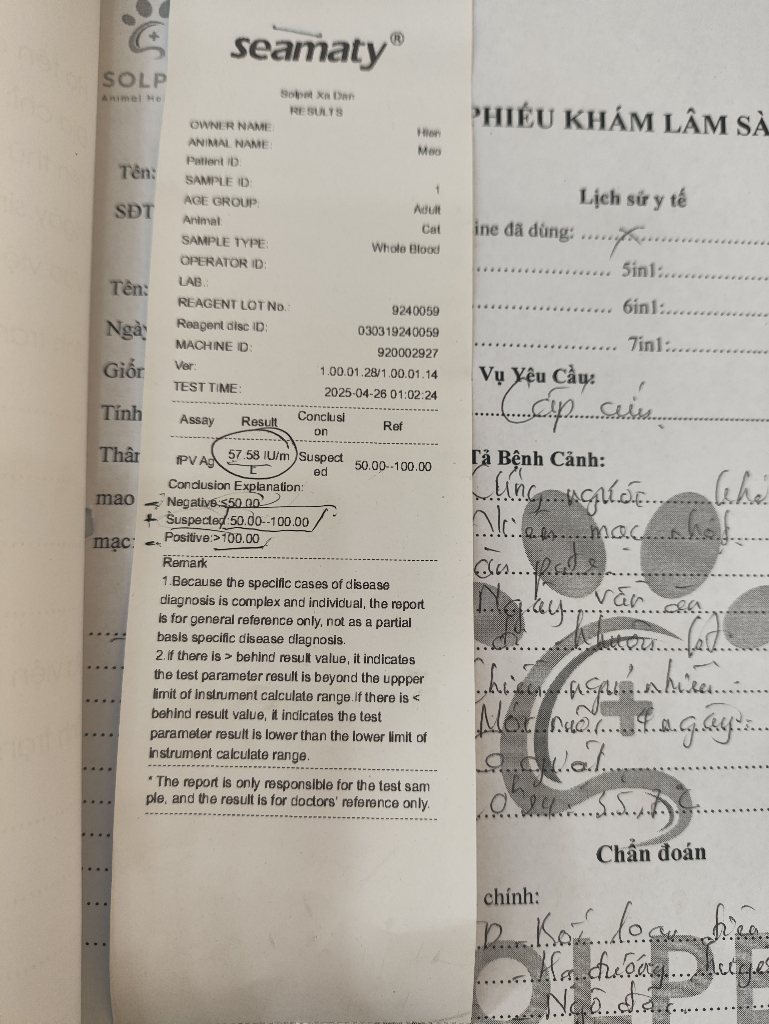 seamaty®
SOLP
Animal He
Solpet Xa Dan
RESULTS
OWNER NAME: Hien
ANIMAL NAME: Meo
Patient ID:
SAMPLE ID: 1
AGE GROUP: Adult
Animal: Cat
SAMPLE TYPE: Whole Blood
OPERATOR ID:
LAB.:
REAGENT LOT No.: 9240059
Reagent disc ID: 030319240059
MACHINE ID: 920002927
Ver: 1.00.01.28/1.00.01.14
TEST TIME: 2025-04-26 01:02:24
Assay Result Conclusi
on Ref
fPV Ag 57.58 IU/m
L Suspect
ed 50.00--100.00
Conclusion Explanation:
Negative:≤50.00
Suspected:50.00--100.00
Positive:>100.00
Remark
1.Because the specific cases of disease
diagnosis is complex and individual, the report
is for general reference only, not as a partial
basis specific disease diagnosis.
2.If there is > behind result value, it indicates
the test parameter result is beyond the uppper
limit of instrument calculate range.If there is <
behind result value, it indicates the test
parameter result is lower than the lower limit of
instrument calculate range.
* The report is only responsible for the test sam
ple, and the result is for doctors' reference only.
Tên:
SĐT
Tên:
Ngày
Giốn
Tính
Thân
mao
mạc:
PHIẾU KHÁM LÂM SÀ
Lịch sử y tế
ine đã dùng: x
5in1:
6in1:
7in1:
Vụ Yêu Cầu:
Cấp cứu
Tả Bệnh Cảnh:
Niêm mạc nhợt
ăn pate
Ngày vẫn ăn
nhiều
Mới nuôi 4 ngày
Chẩn đoán
chính:
Rối loạn tiêu
Hạ đường huyết
Ngộ độc